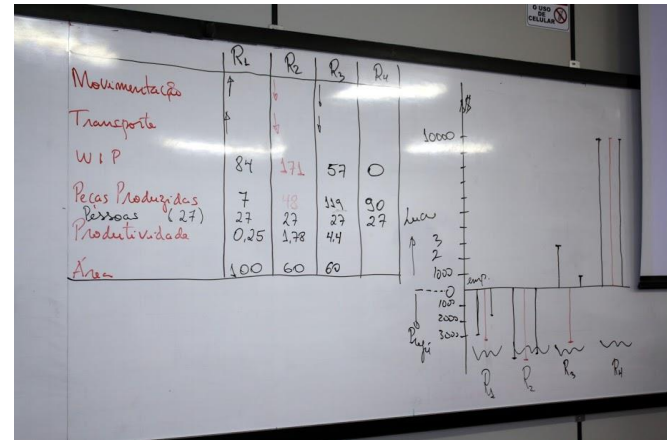 O USO
DE
CELULAR
R1 R2 R3 R4
Movimentação ↑ ↓ ↓
Transporte ↑ ↓ ↓
WIP 84 171 57 0
Peças Produzidas 7 48 119 90
Pessoas (27) 27 27 27 27
Produtividade 0,25 1,78 4,4
Área 100 60 60
$
10000
Lucro
3
2
1000
emp.
0
1000
2000
3000
Prejú
R1 R2 R3 R4